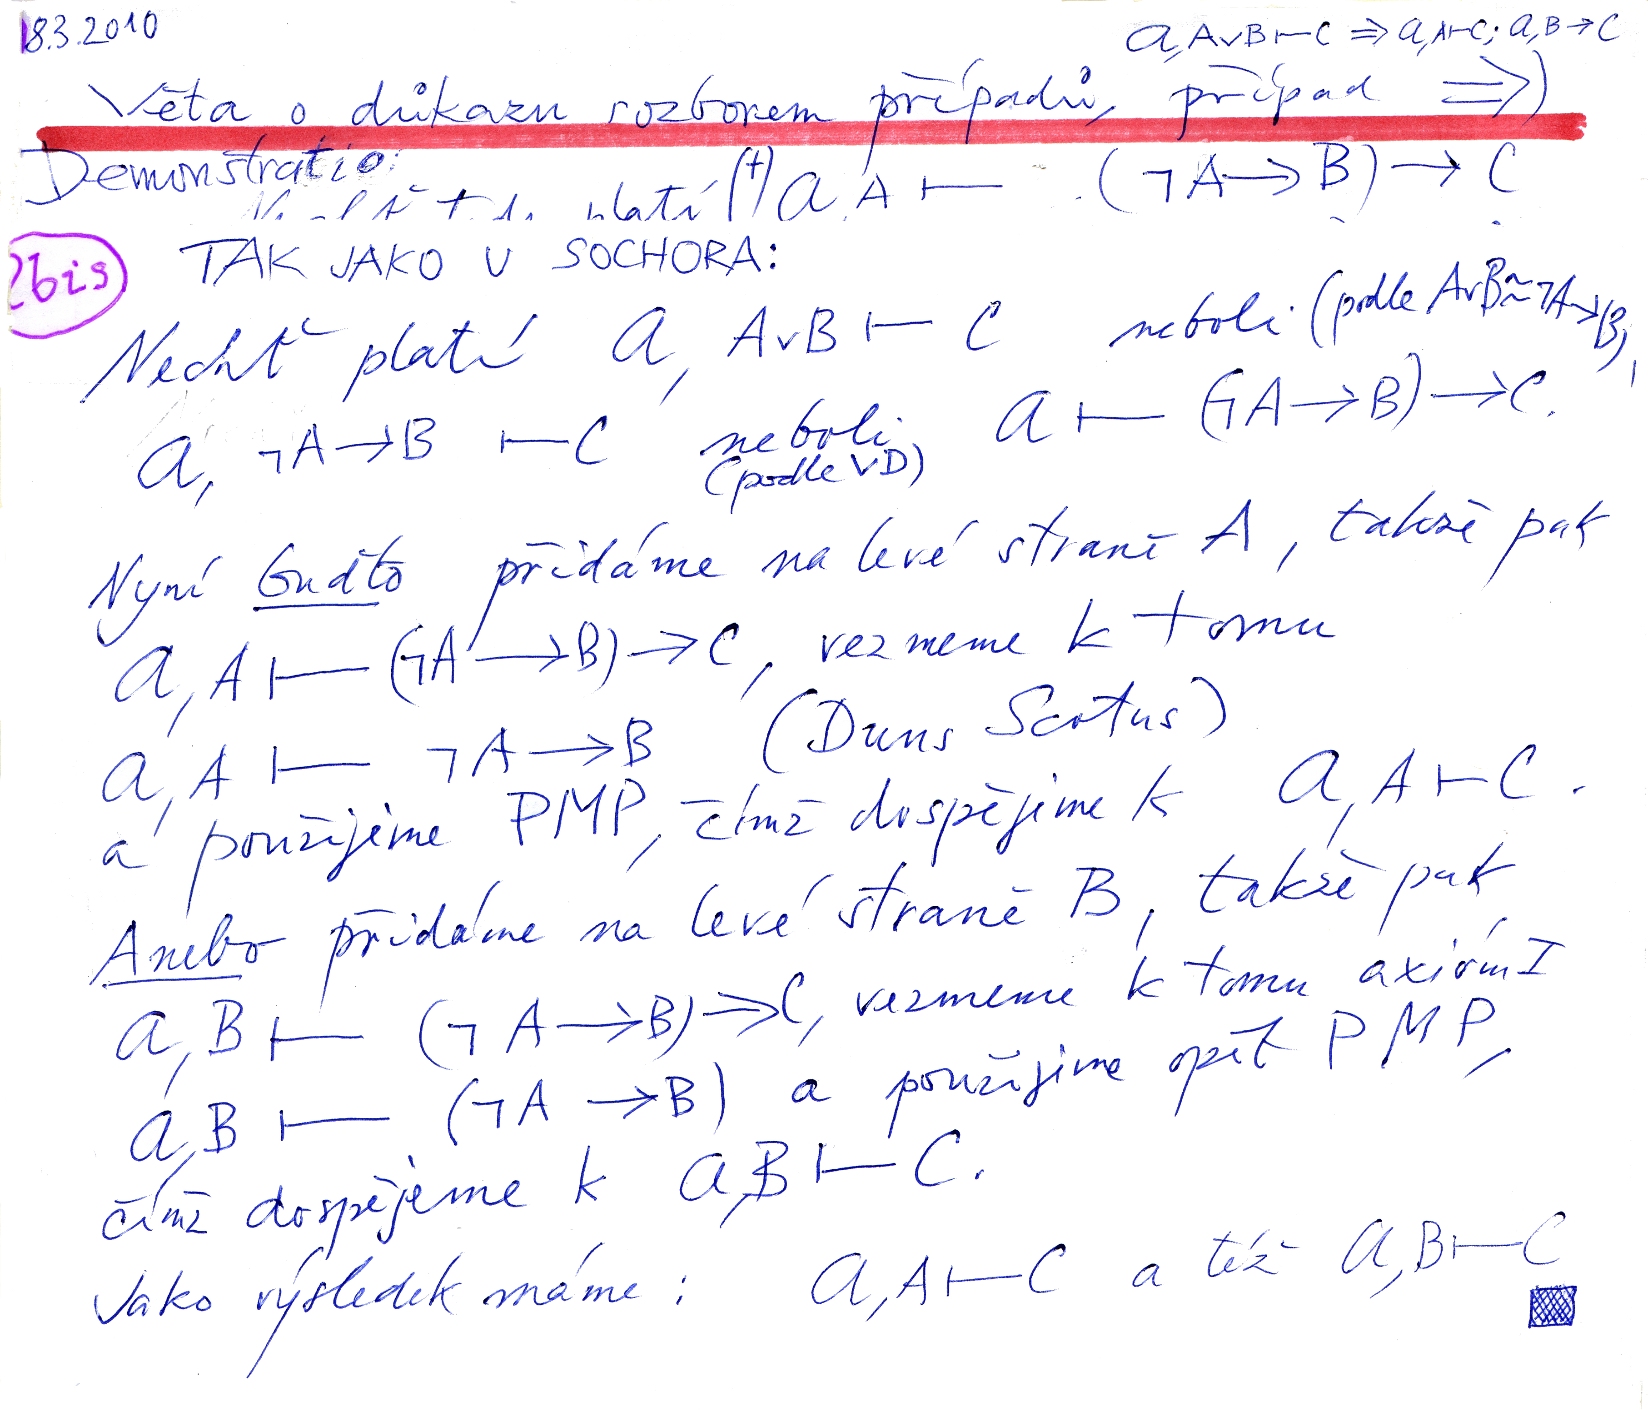 18.3.2010
a, A∨B ⊢ C ⇒ a, A ⊢ C; a, B → C
Věta o důkazu rozborem případů, případ ⇒)
Demonstratio:
platí (+) a, A ⊢ (¬A → B) → C
2bis TAK JAKO U SOCHORA:
Nechť platí a, A∨B ⊢ C neboli (podle A∨B ≈ ¬A→B),
a, ¬A → B ⊢ C neboli (podle VD) a ⊢ (¬A → B) → C.
Nyní buďto přidáme na levé straně A, takže pak
a, A ⊢ (¬A → B) → C, vezmeme k tomu
a, A ⊢ ¬A → B (Duns Scotus)
a použijeme PMP, čímž dospějeme k a, A ⊢ C.
Anebo přidáme na levé straně B, takže pak
a, B ⊢ (¬A → B) → C, vezmeme k tomu axióm I
a, B ⊢ (¬A → B) a použijeme opět PMP,
čímž dospějeme k a, B ⊢ C.
Jako výsledek máme: a, A ⊢ C a též a, B ⊢ C